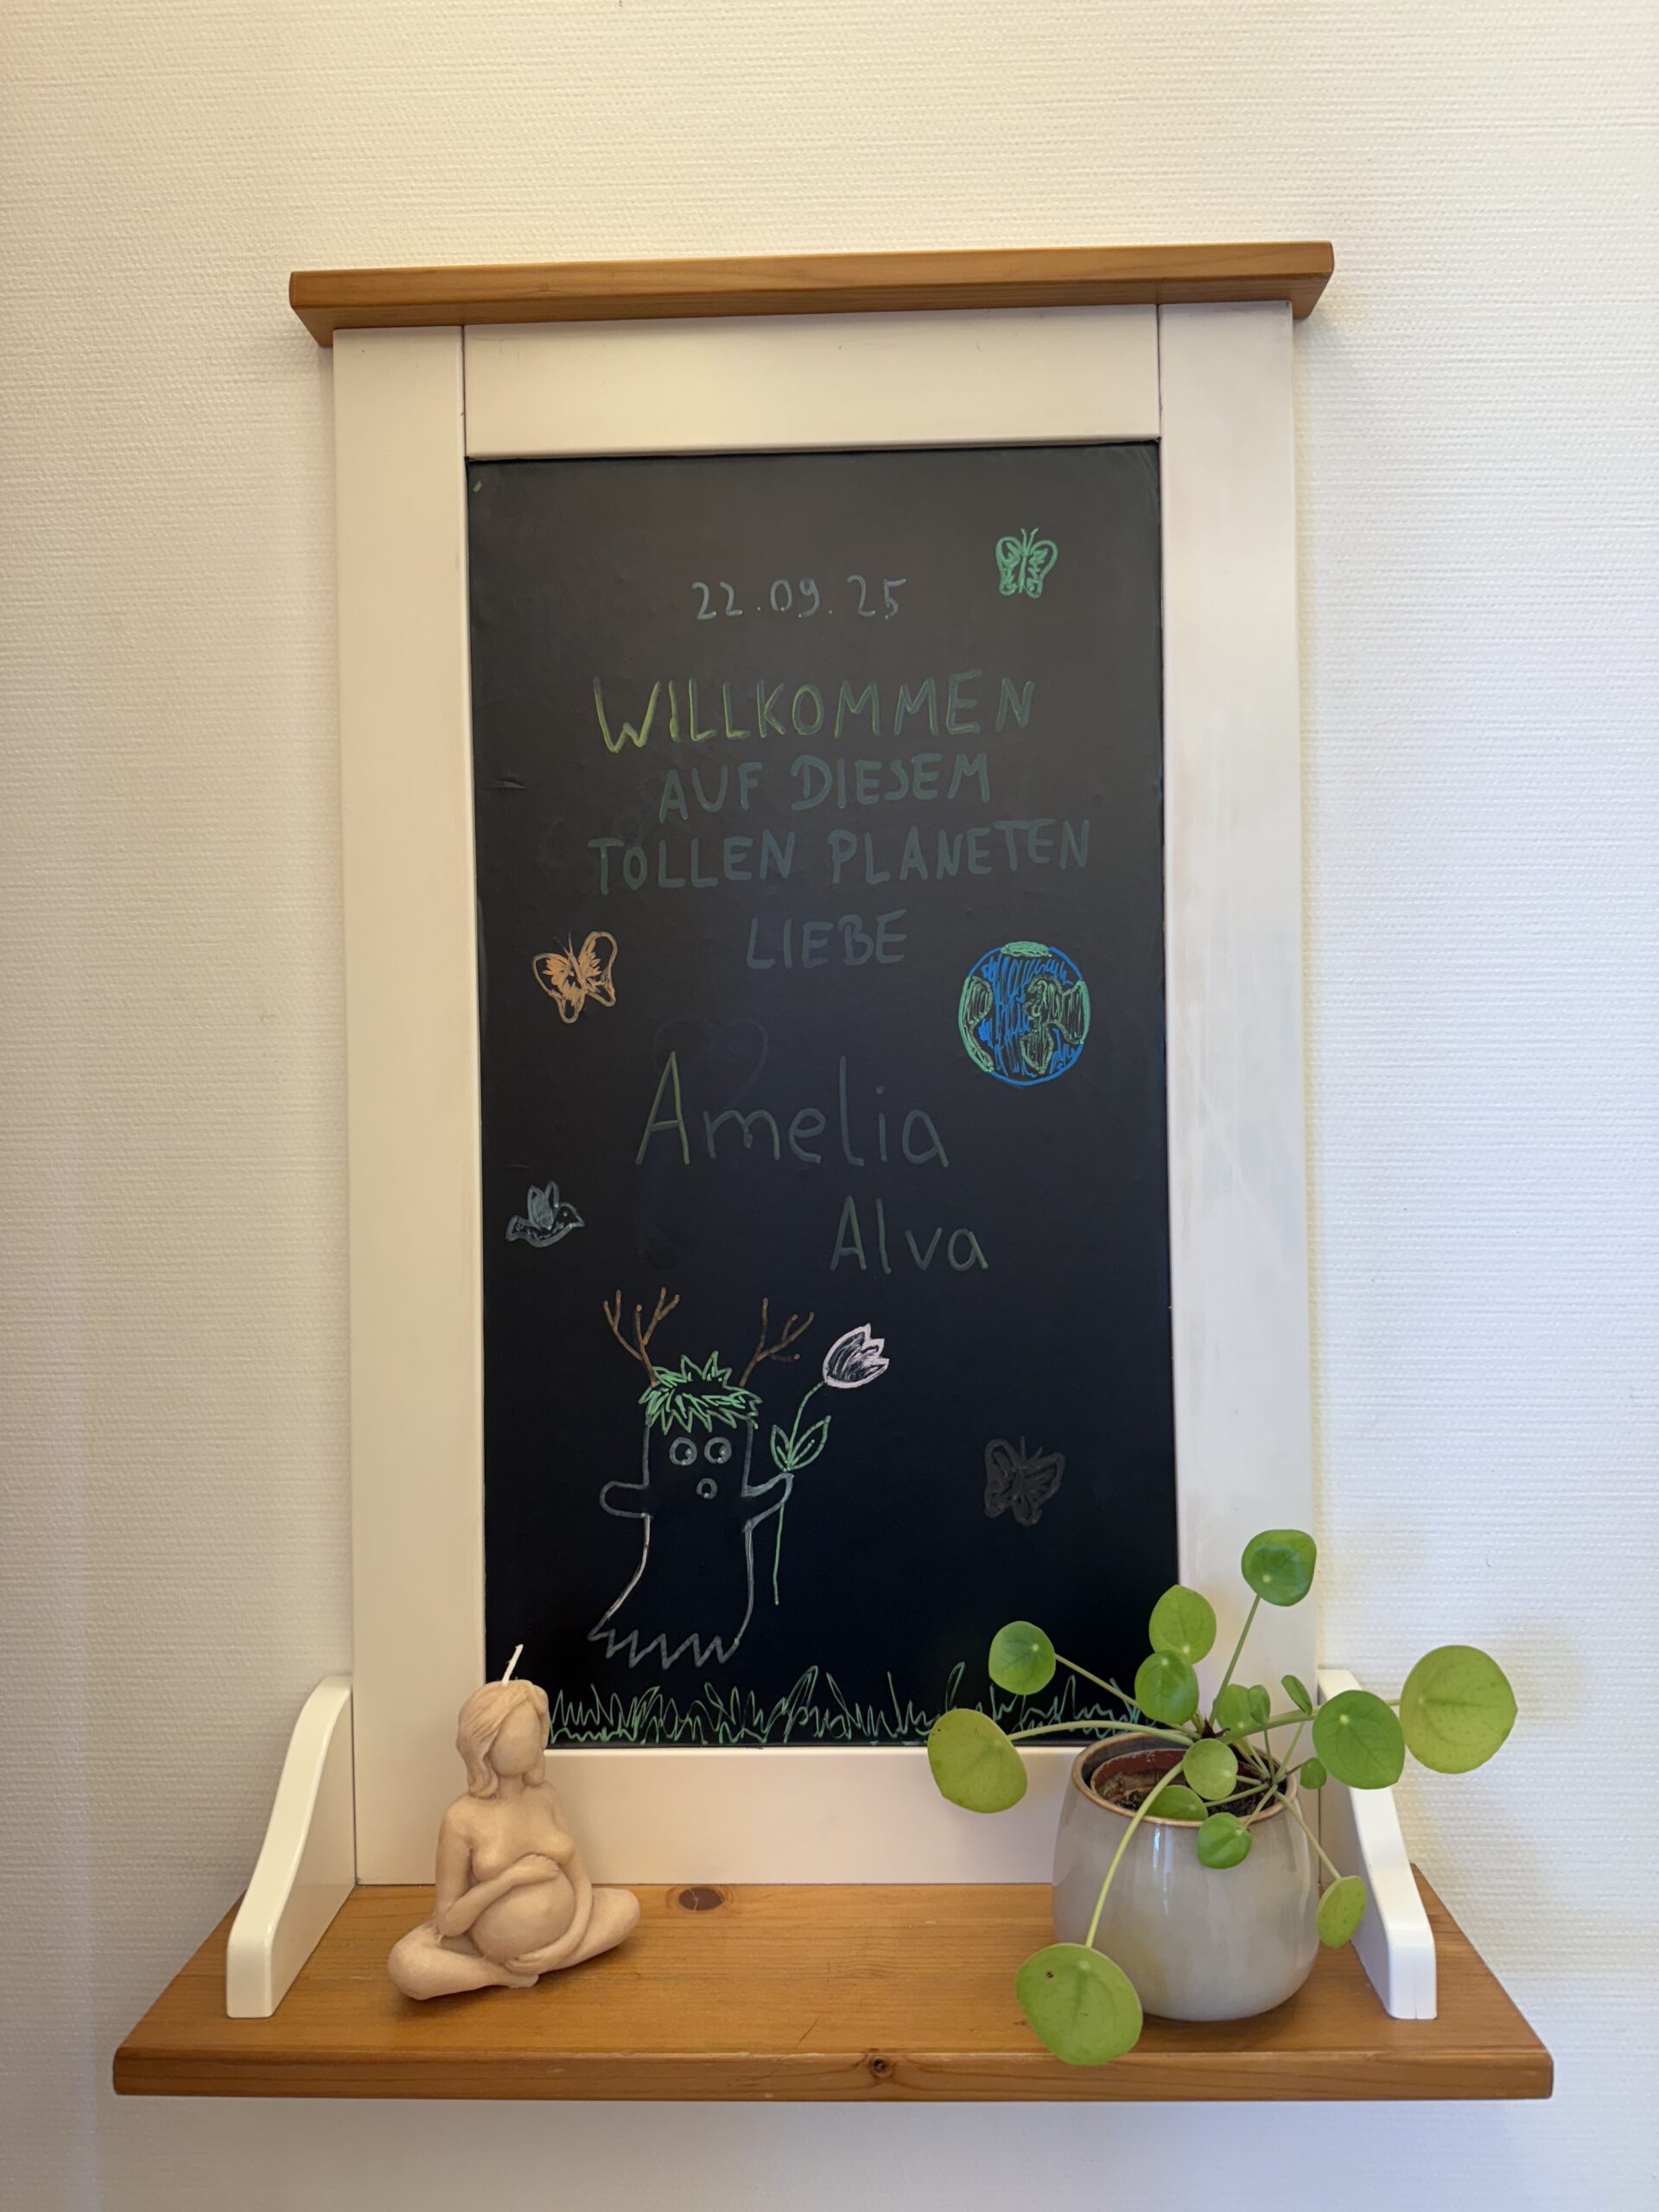 22.09.25
WILLKOMMEN
AUF DIESEM
TOLLEN PLANETEN
LIEBE
Amelia
Alva